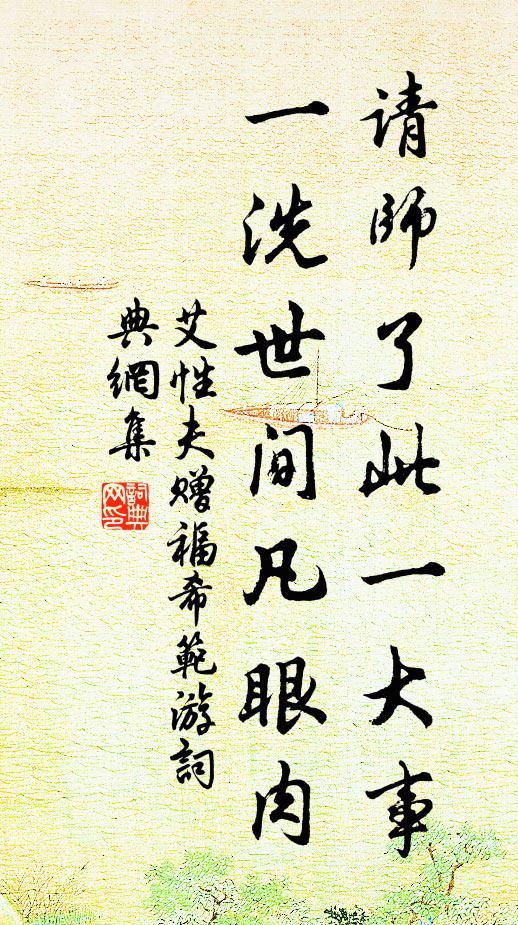 请師了此一大事
一洗世间凡眼肉
艾性夫赠福希範游詞
典網集
詞典网印